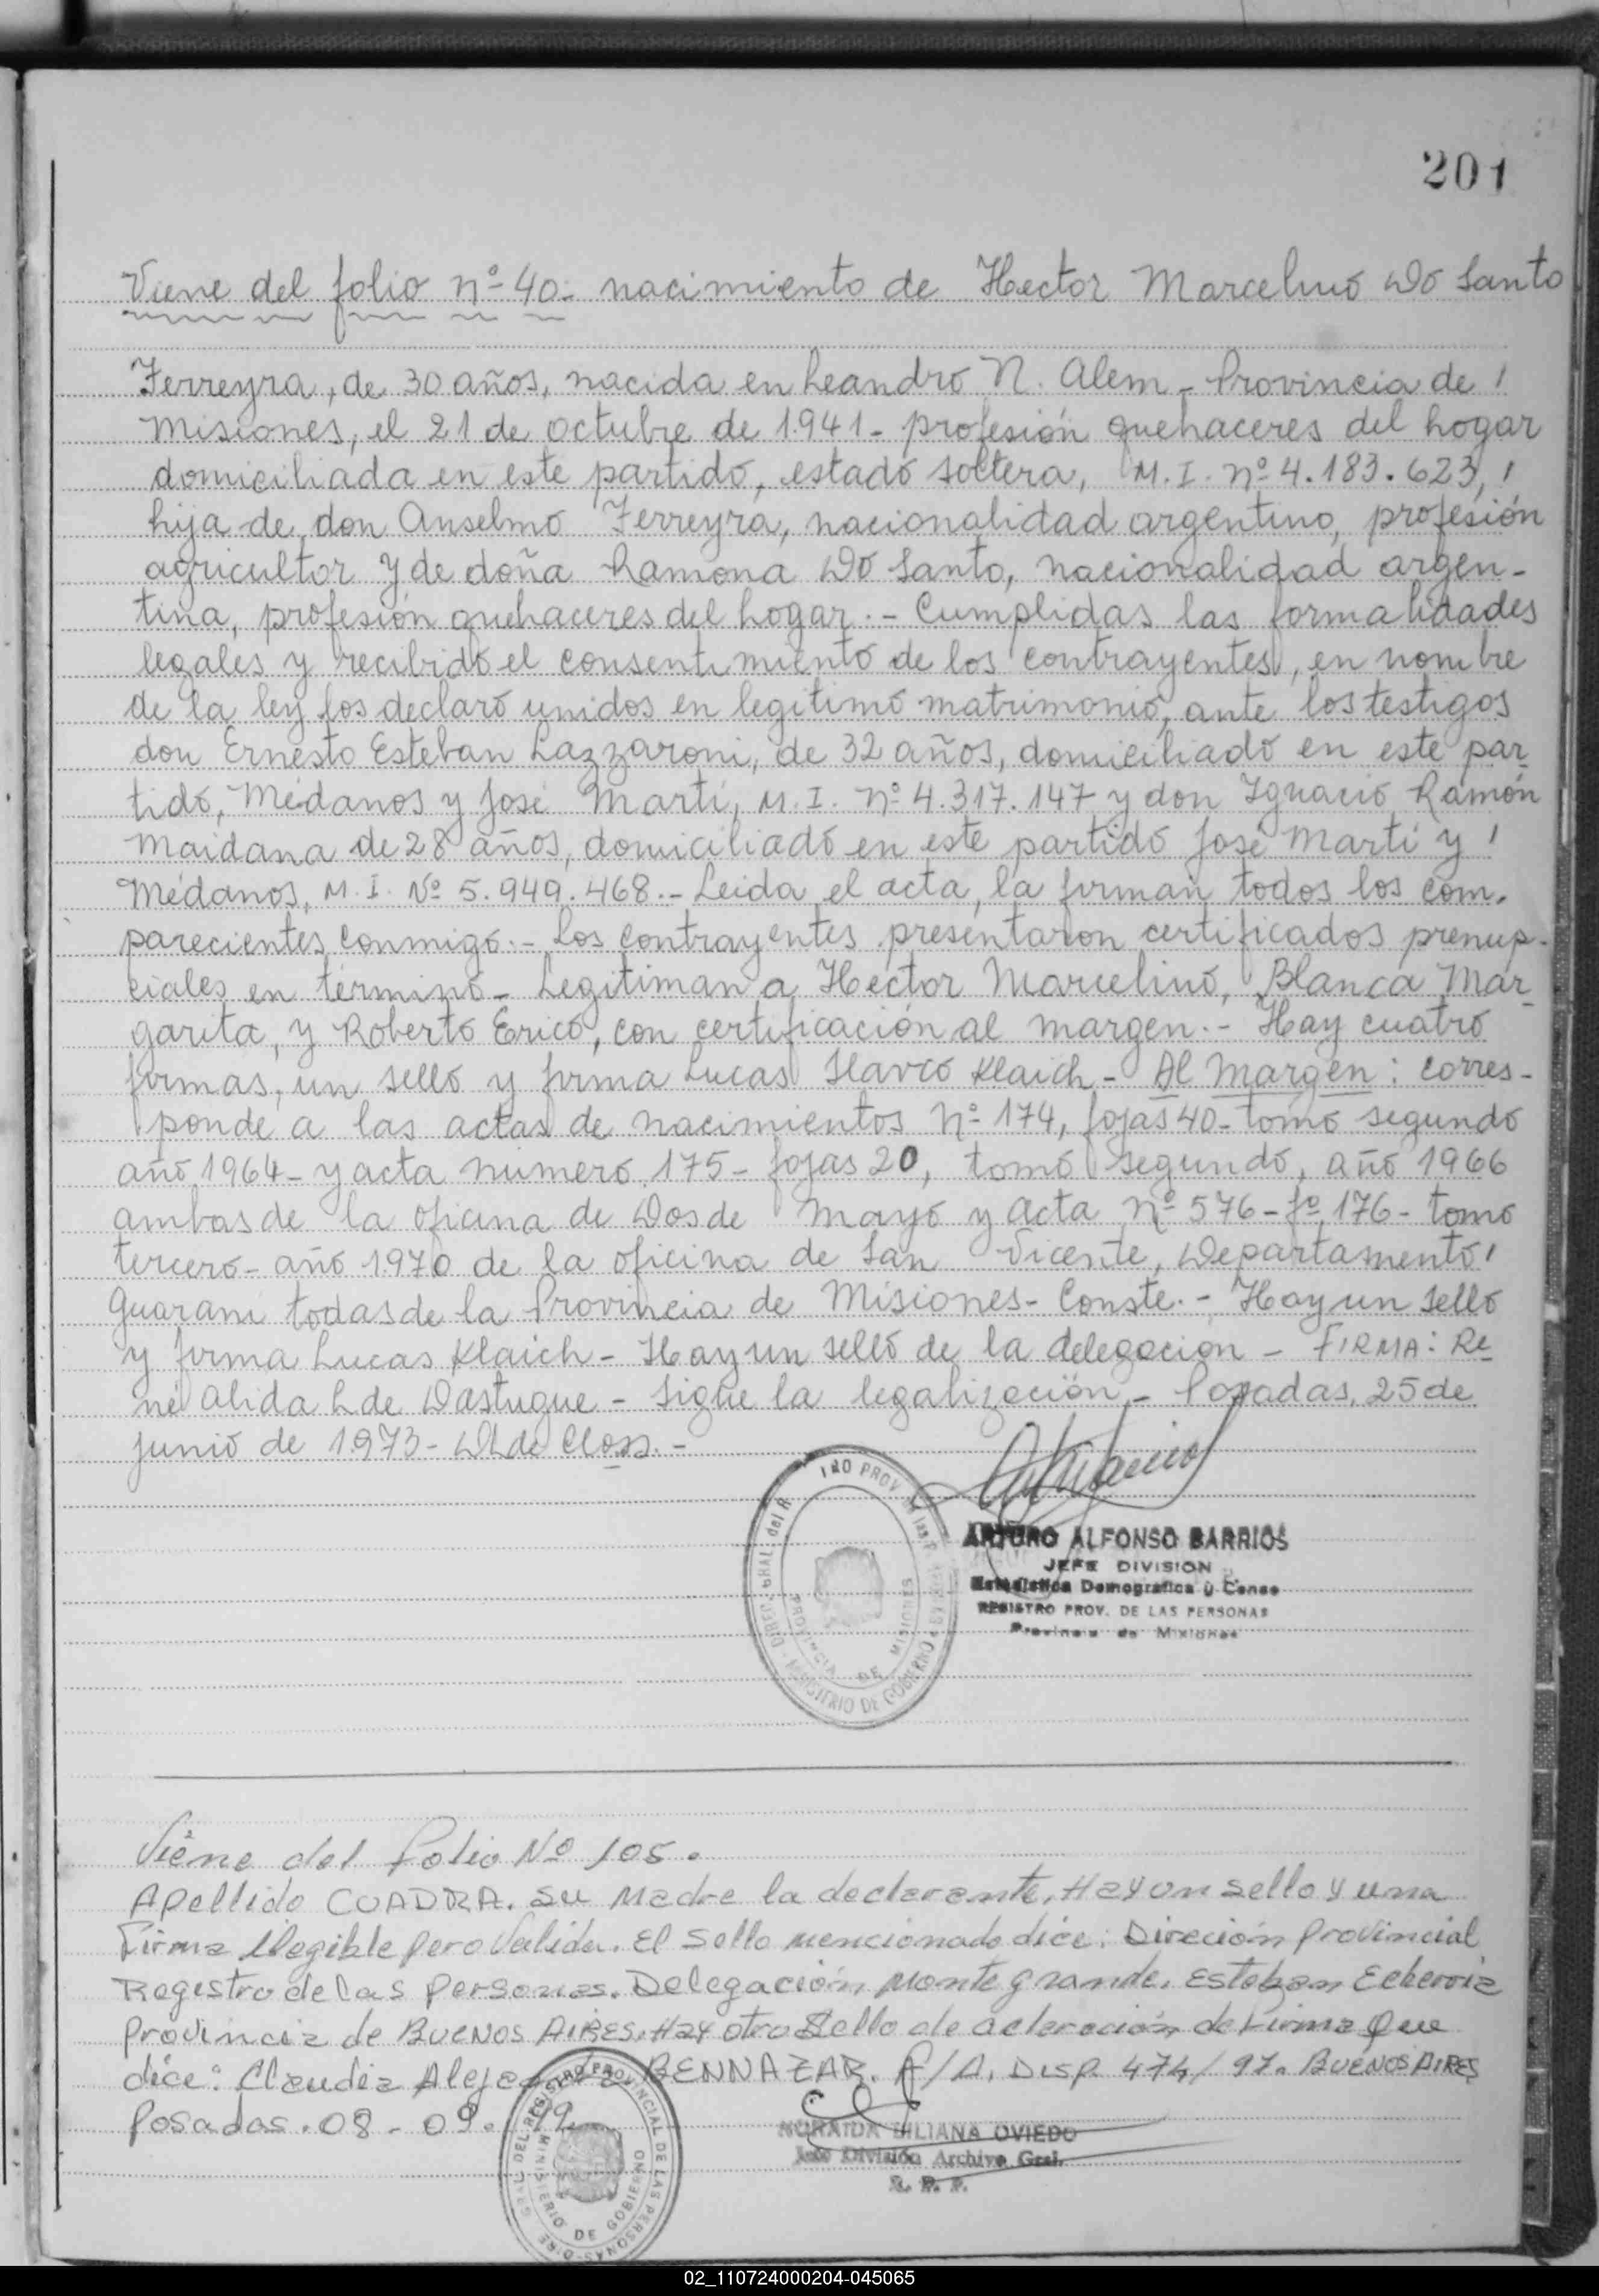 201
Viene del folio nº 40- nacimiento de Hector Marcelino Do Santo
Ferreyra, de 30 años, nacida en Leandro N. Alem - Provincia de
Misiones, el 21 de octubre de 1941 - profesión quehaceres del hogar
domiciliada en este partido, estado soltera, M. I. nº 4.183.623,
hija de don Anselmo Ferreyra, nacionalidad argentino, profesión
agricultor y de doña Ramona Do Santo, nacionalidad argen-
tina, profesión quehaceres del hogar.- Cumplidas las formalidades
legales y recibido el consentimiento de los contrayentes, en nombre
de la ley los declaró unidos en legitimo matrimonio, ante los testigos
don Ernesto Esteban Lazzaroni, de 32 años, domiciliado en este par-
tido, Médanos y José Martí, M. I. nº 4.317.147 y don Ignacio Ramón
Maidana de 28 años, domiciliado en este partido José Martí y
Médanos, M. I. Nº 5.949.468.- Leida el acta, la firman todos los com-
parecientes conmigo.- Los contrayentes presentaron certificados prenup-
ciales en término - Legitiman a Hector Marcelino, Blanca Mar-
garita, y Roberto Erico, con certificación al margen.- Hay cuatro
firmas, un sello y firma Lucas Slavco Klaich - Al Margen: corres-
ponde a las actas de nacimientos nº 174, fojas 40- tomo segundo
año 1964- y acta número 175- fojas 20, tomo segundo, año 1966
ambas de la oficina de Dos de Mayo y acta nº 576- fº 176- tomo
tercero- año 1970 de la oficina de San Vicente, Departamento
Guarani todas de la Provincia de Misiones- Conste.- Hay un sello
y firma Lucas Klaich - Hay un sello de la delegacion - FIRMA: Re-
né Alida L de Dastugue - Sigue la legalización - Posadas, 25 de
junio de 1973- de Closs.-
ARTURO ALFONSO BARRIOS
JEFE DIVISION
Estadistica Demografica y Censo
REGISTRO PROV. DE LAS PERSONAS
Provincia de Misiones
PROVINCIA DE MISIONES
MINISTERIO DE GOBIERNO
Viene del folio Nº 105.
Apellido CUADRA. su Madre la declarante. Hay un sello y una
Firma Ilegible pero Valida. El sello mencionado dice: Direción Provincial
Registro de las Personas. Delegación Monte grande. Esteban Echevria
Provincia de BUENOS AIRES. Hay otro Sello de acleración de Firma Que
dice: Claudia BENNAZAR. A/A. DISP. 474/97. BUENOS AIRES
Posadas. 08 - 09.
NORAIDA LILIANA OVIEDO
Jefe División Archivo Gral.
R. P. P.
REGISTRO PROVINCIAL DE LAS PERSONAS
MINISTERIO DE GOBIERNO
02_110724000204-045065